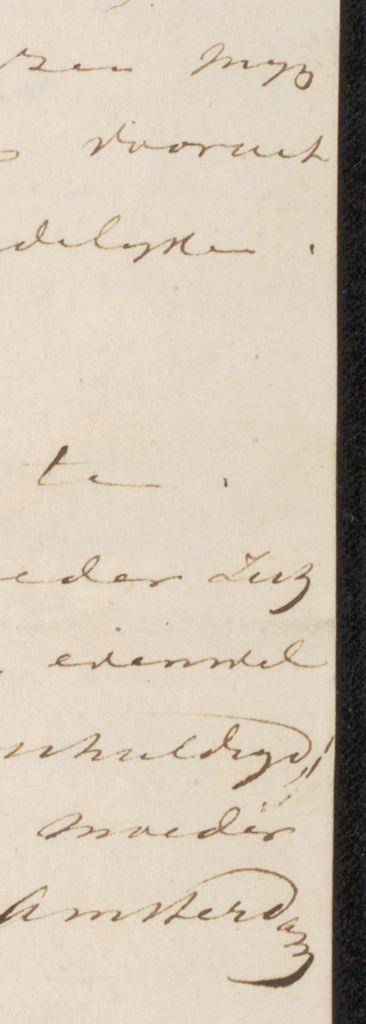 zen myn
vooruit
delyken .
te .
eder Zulz
evenwel
schuldigd!
moeder
Amsterdam